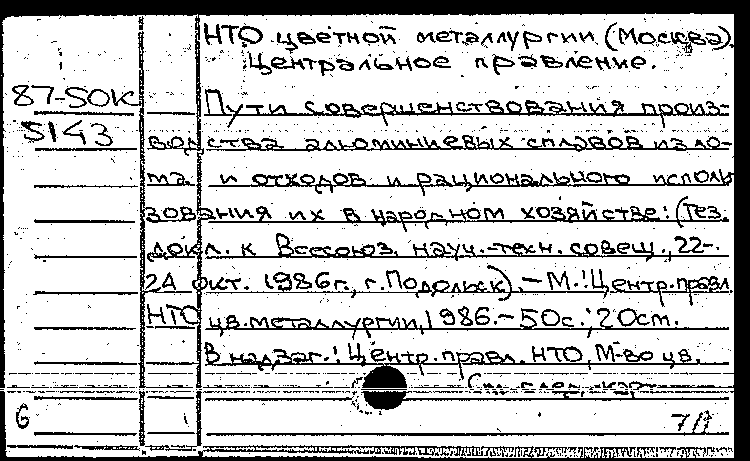 НТО цветной металлургии (Москва).
Центральное правление.
87-50К
5143
Пути совершенствования произ-
водства алюминиевых сплавов из ло-
ма и отходов и рационального исполь
зования их в народном хозяйстве: (Тез.
докл. к Всесоюз. науч.-техн. совещ., 22-
24 окт. 1986г., г.Подольск). – М.: Центр.правл
НТО цв.металлургии, 1986.– 50с.; 20см.
В надзаг.: Центр. правл. НТО, М-во цв.
См. след. карт
6